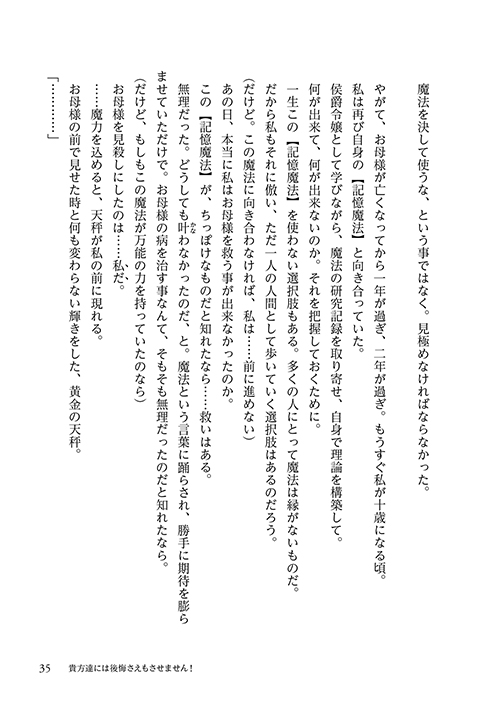 魔法を決して使うな、という事ではなく。見極めなければならなかった。
やがて、お母様が亡くなってから一年が過ぎ、二年が過ぎ。もうすぐ私が十歳になる頃。
私は再び自身の【記憶魔法】と向き合っていた。
侯爵令嬢として学びながら、魔法の研究記録を取り寄せ、自身で理論を構築して。
何が出来て、何が出来ないのか。それを把握しておくために。
一生この【記憶魔法】を使わない選択肢もある。多くの人にとって魔法は縁がないものだ。
だから私もそれに倣い、ただ一人の人間として歩いていく選択肢はあるのだろう。
(だけど。この魔法に向き合わなければ、私は……前に進めない)
あの日、本当に私はお母様を救う事が出来なかったのか。
この【記憶魔法】が、ちっぽけなものだと知れたなら……救いはある。
無理だった。どうしても叶わなかったのだ、と。魔法という言葉に踊らされ、勝手に期待を膨ら
かな
ませていただけで。お母様の病を治す事なんて、そもそも無理だったのだと知れたなら。
(だけど、もしもこの魔法が万能の力を持っていたのなら)
お母様を見殺しにしたのは……私だ。
……魔力を込めると、天秤が私の前に現れる。
お母様の前で見せた時と何も変わらない輝きをした、黄金の天秤。
「…………」
35
貴方達には後悔さえもさせません！